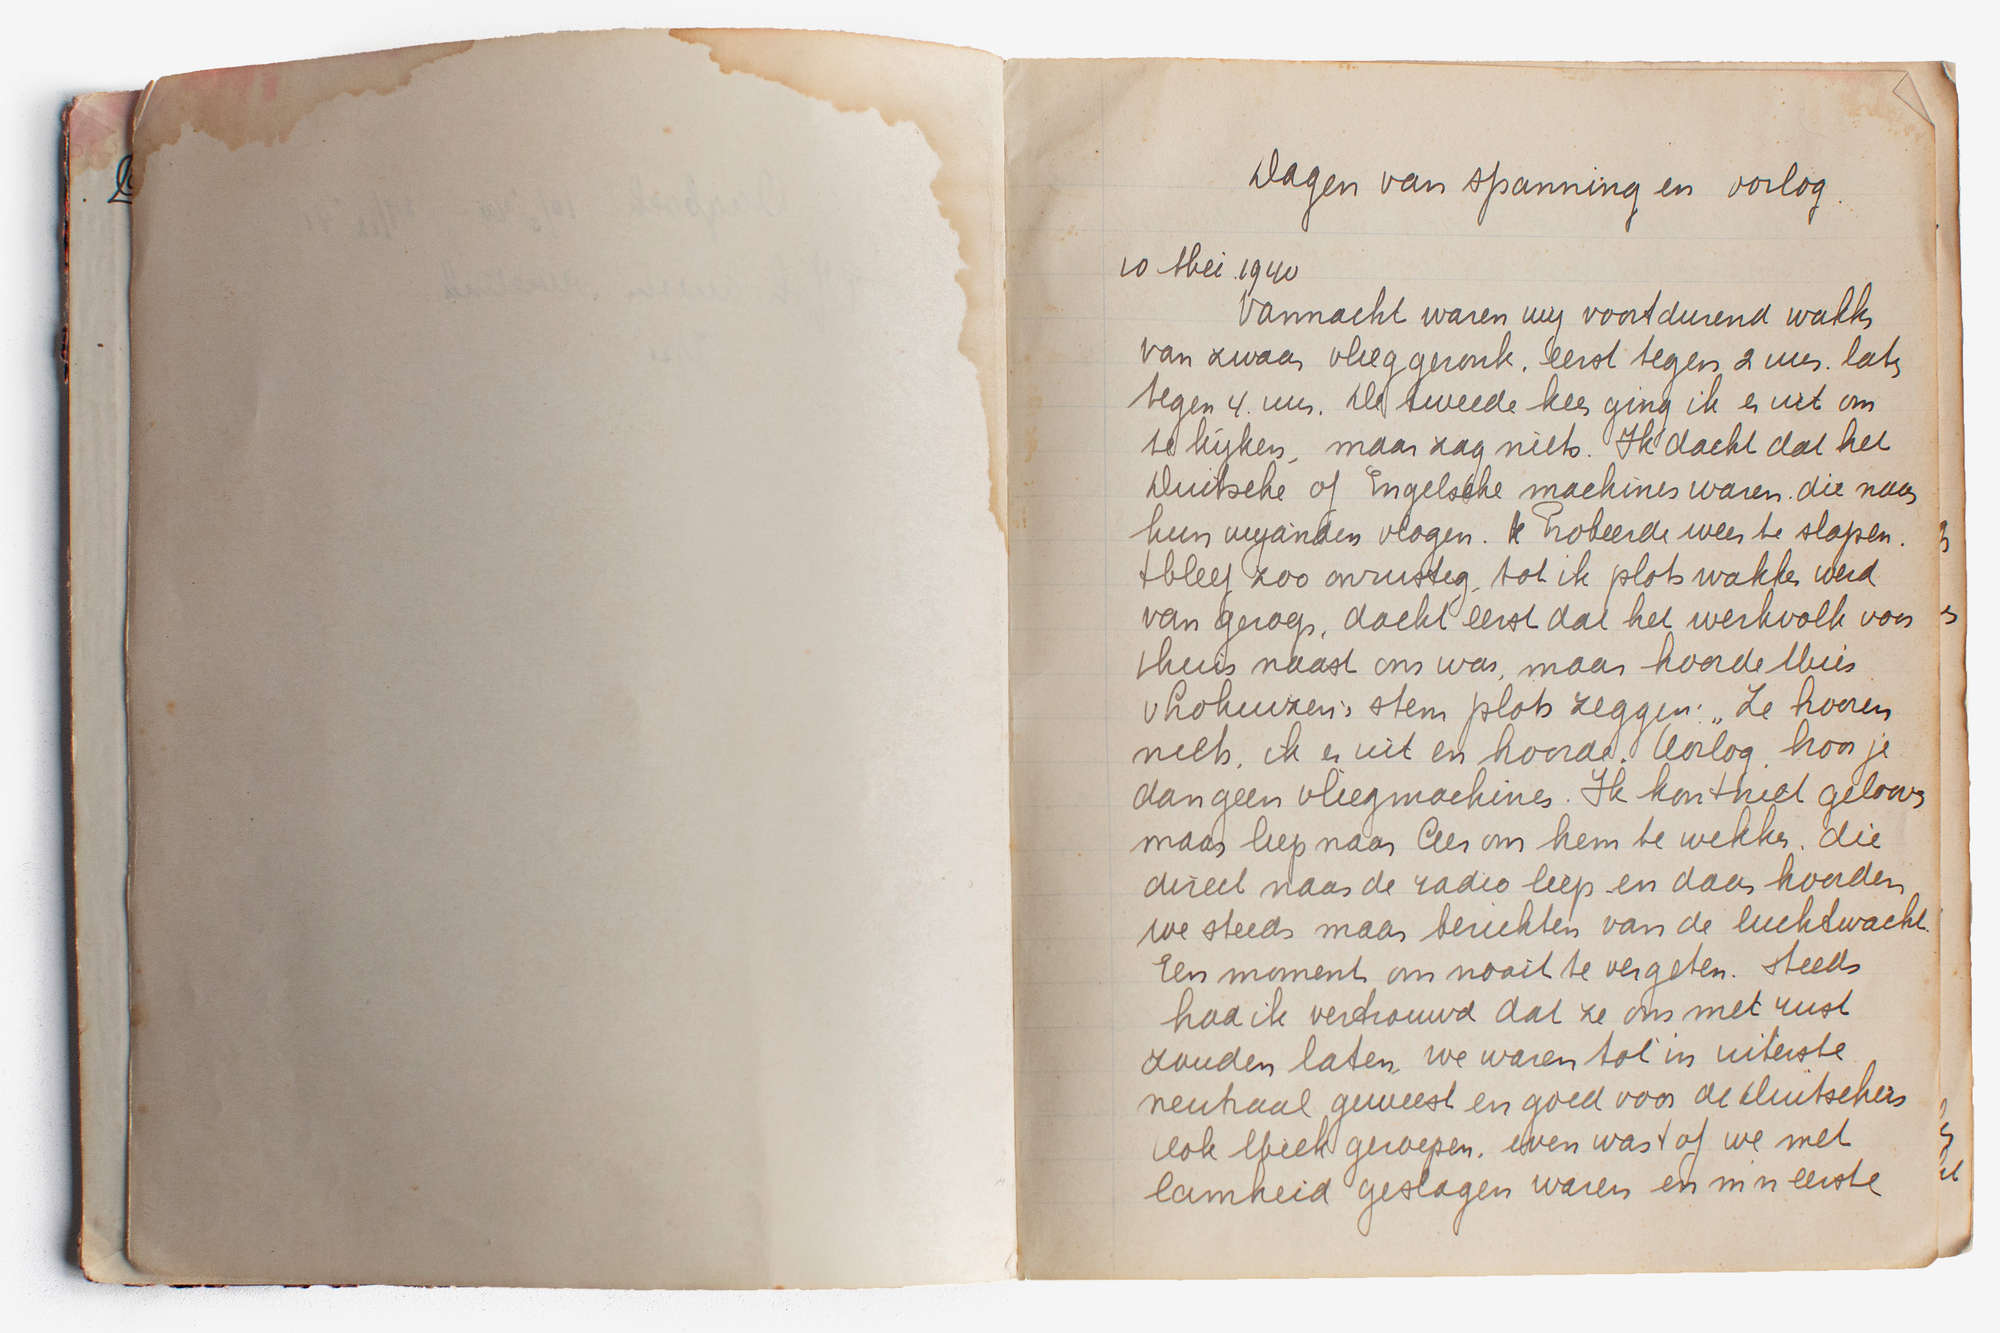 Dagen van spanning en oorlog.
10 Mei 1940
Vannacht waren wij voortdurend wakker
van zwaar vlieggeronk, eerst tegen 2 uur. later
tegen 4. uur. De tweede keer ging ik er uit om
te kijken, maar zag niets. Ik dacht dat het
Duitsche of Engelsche machines waren die naar
hun vijanden vlogen. Probeerde weer te slapen.
t bleef zoo onrustig, tot ik plots wakker werd
van geroep, dacht eerst dat het werkvolk voor
thuis naast ons was, maar hoorde
stem plots zeggen: „Ze hooren
niets, ik er uit en hoorde. Oorlog, hoor je
dan geen vliegmachines. Ik kon t niet gelooven
maar liep naar Cees om hem te wekken. die
direct naar de radio liep en daar hoorden
we steeds maar berichten van de luchtwacht.
Een moment om nooit te vergeten. Steeds
had ik vertrouwd dat ze ons met rust
zouden laten, we waren tot in uiterste
neutraal geweest en goed voor de Duitschers
ook geroepen, even was t of we met
lamheid geslagen waren en m'n eerste